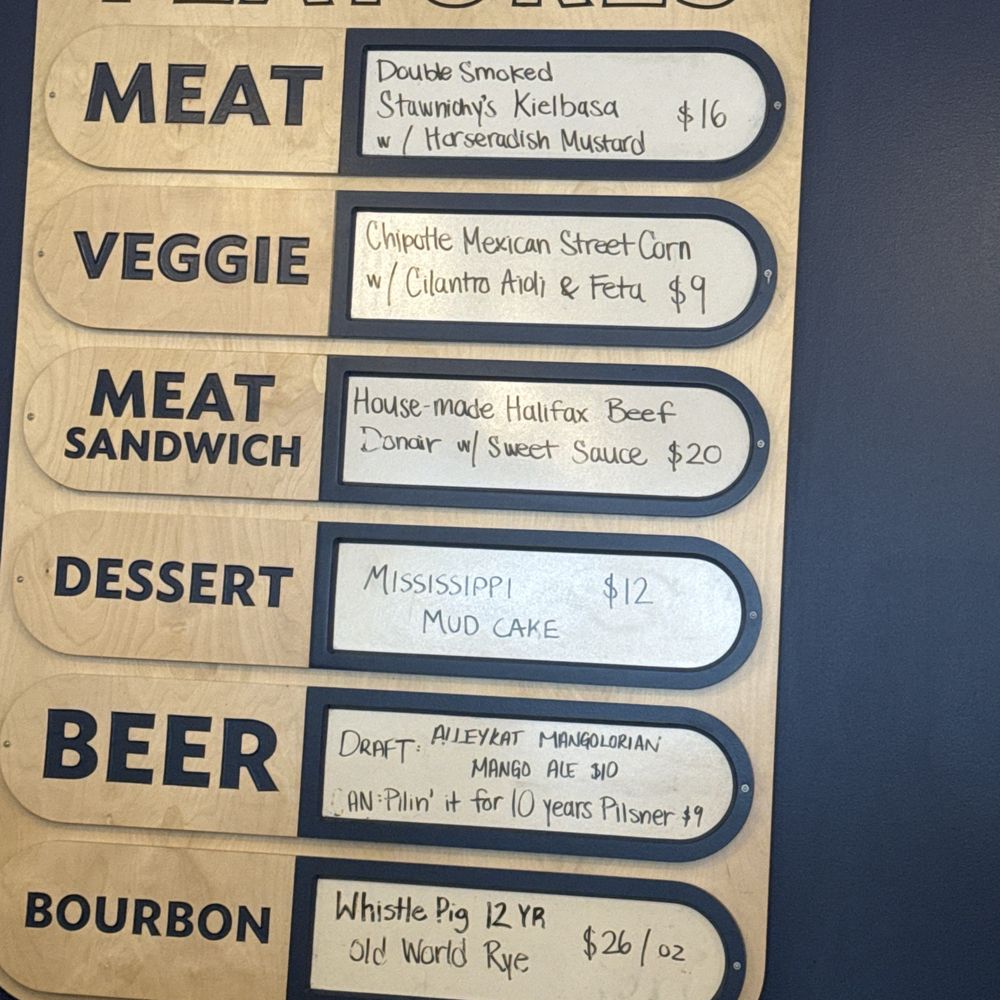 FEATURES
MEAT
Double Smoked
Stawnichy's Kielbasa $16
w/ Horseradish Mustard
VEGGIE
Chipotle Mexican Street Corn
w/ Cilantro Aioli & Feta $9
MEAT
SANDWICH
House-made Halifax Beef
Donair w/ Sweet Sauce $20
DESSERT
MISSISSIPPI $12
MUD CAKE
BEER
DRAFT: ALLEYKAT MANGOLORIAN
MANGO ALE $10
CAN: Pilin' it for 10 years Pilsner $9
BOURBON
Whistle Pig 12 YR
Old World Rye $26/oz